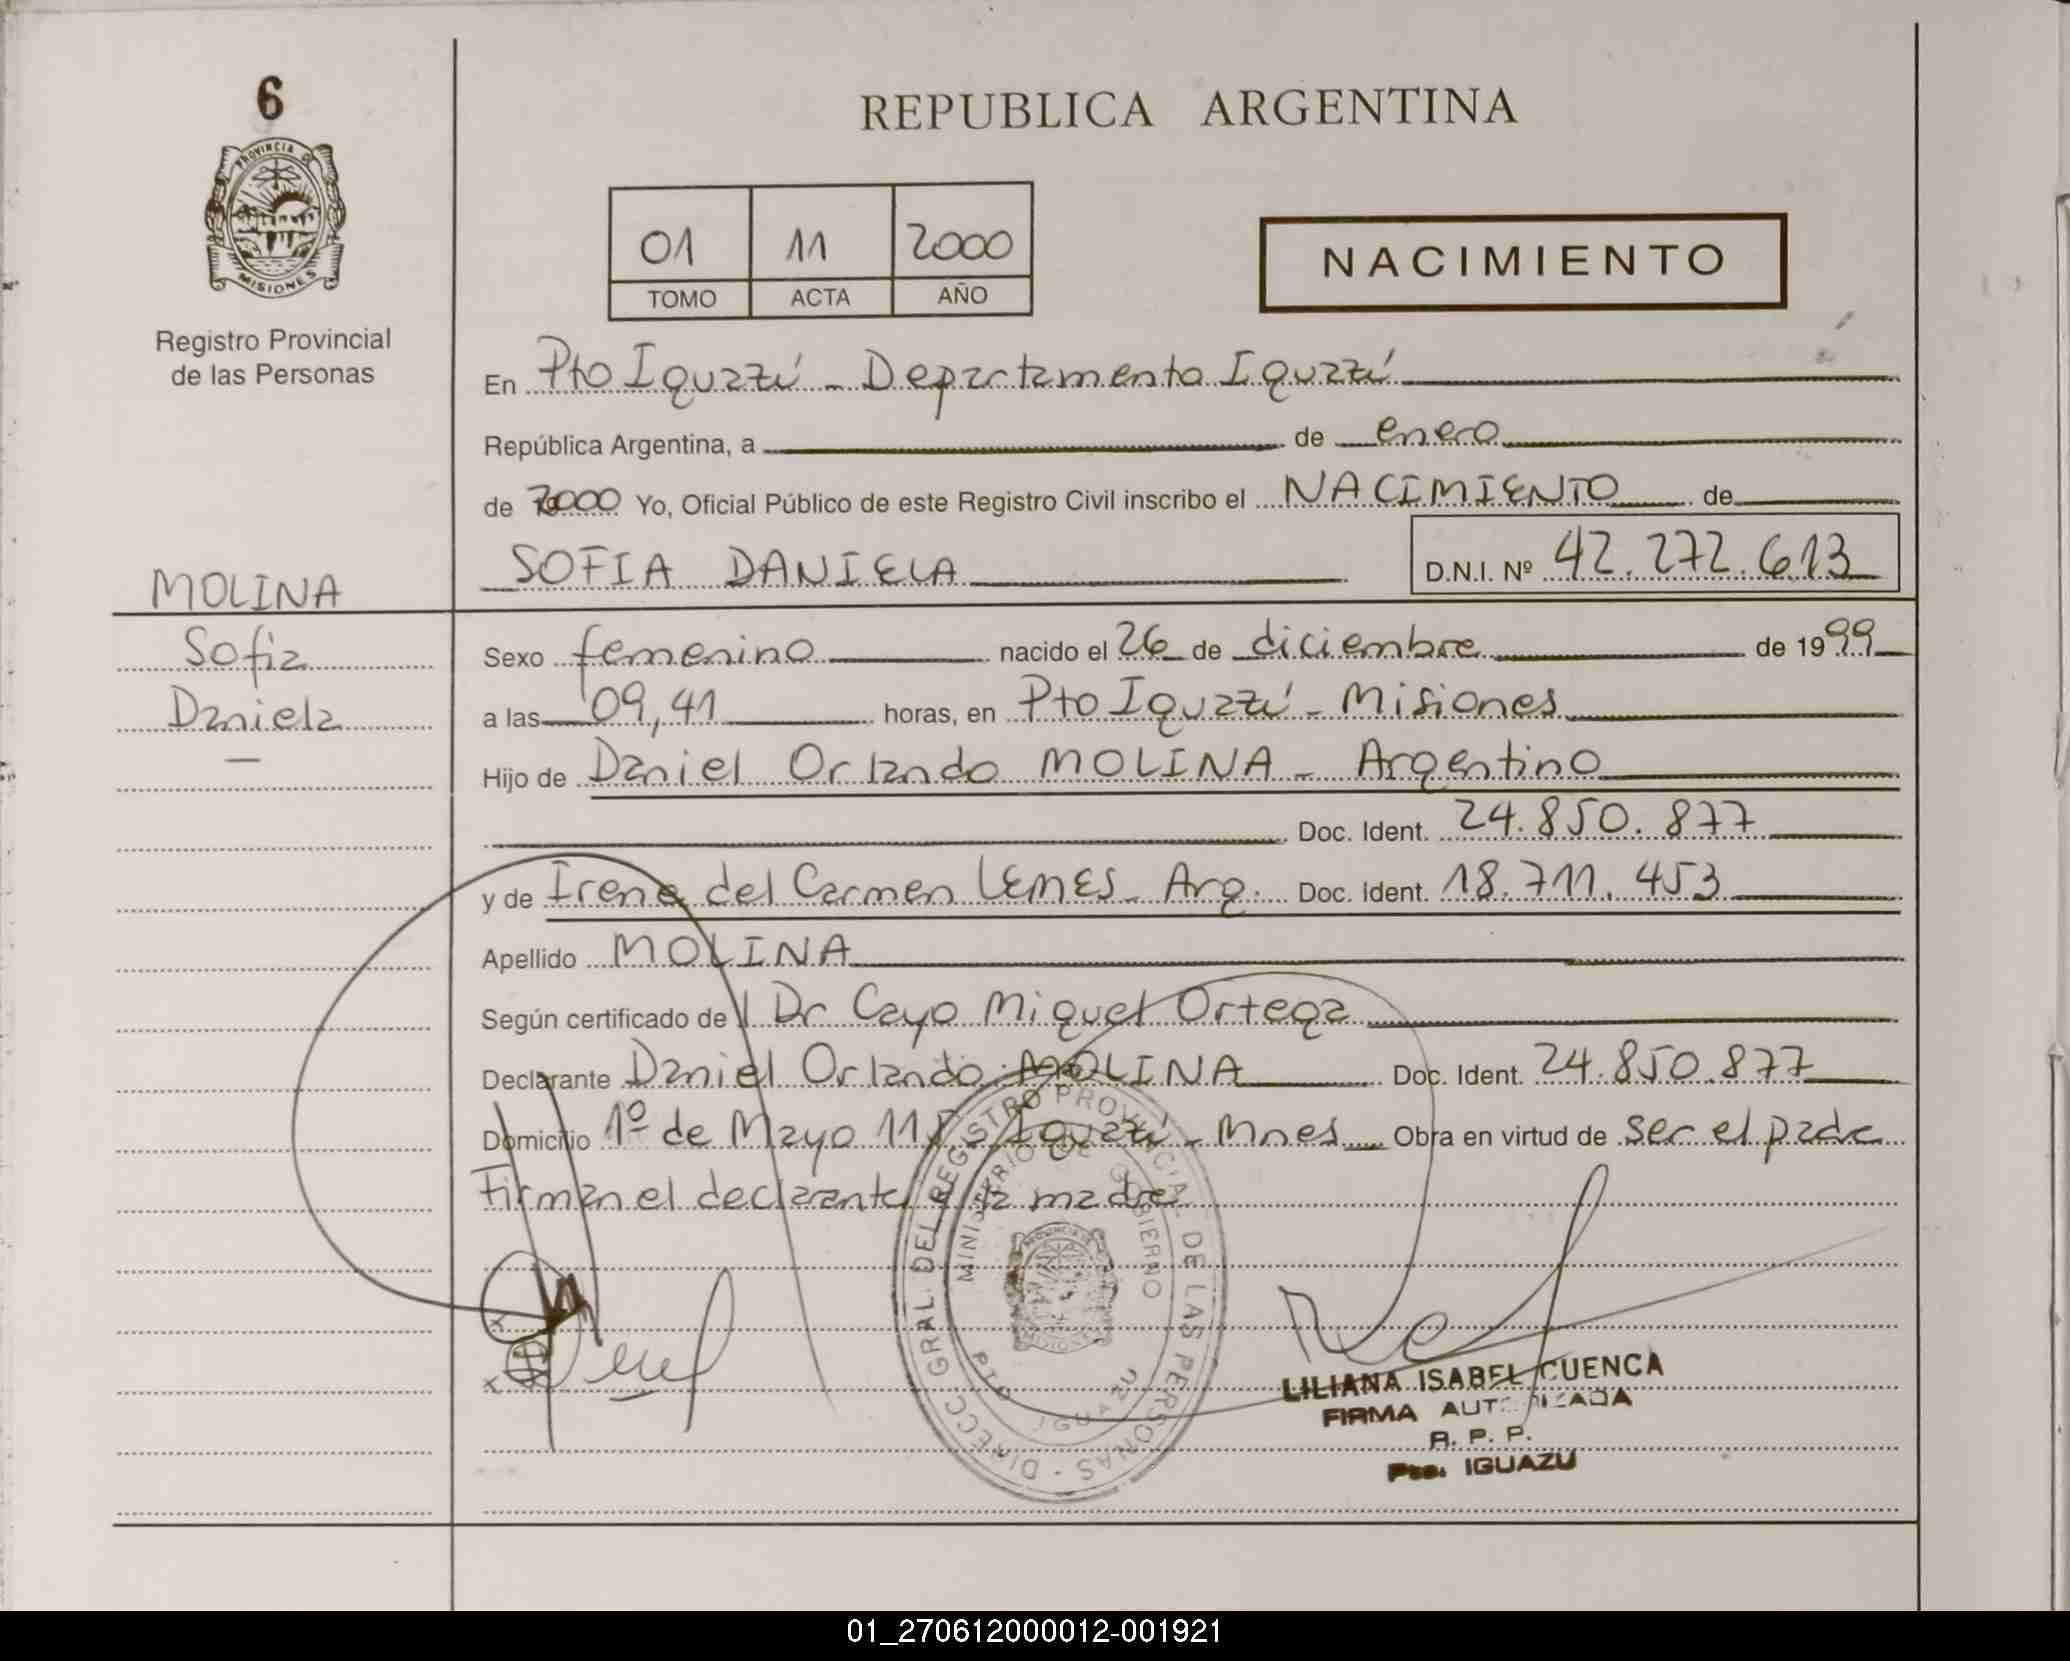 6
REPUBLICA ARGENTINA
PROVINCIA DE
MISIONES
01 11 2000
TOMO ACTA AÑO
NACIMIENTO
Registro Provincial
de las Personas
En Pto Iguazú - Departamento Iguazú
República Argentina, a de enero
de 2000 Yo, Oficial Público de este Registro Civil inscribo el NACIMIENTO de
MOLINA
SOFIA DANIELA D.N.I. Nº 42.272.613
Sofia
Daniela
Sexo femenino nacido el 26 de diciembre de 1999
a las 09,41 horas, en Pto Iguazú - Misiones
Hijo de Daniel Orlando MOLINA - Argentino
Doc. Ident. 24.850.877
y de Irene del Carmen LEMES - Arg. Doc. Ident. 18.711.453
Apellido MOLINA
Según certificado de Dr Cayo Miguel Ortega
Declarante Daniel Orlando MOLINA Doc. Ident. 24.850.877
Domicilio 1º de Mayo Iguazú - Mnes Obra en virtud de ser el padre
Firman el declarante y la madre
DIRECC GRAL. DEL REGISTRO PROVINCIAL DE LAS PERSONAS
MINISTERIO DE GOBIERNO
PTO IGUAZU
LILIANA ISABEL CUENCA
FIRMA AUTORIZADA
R. P. P.
Pto. IGUAZU
01_270612000012-001921